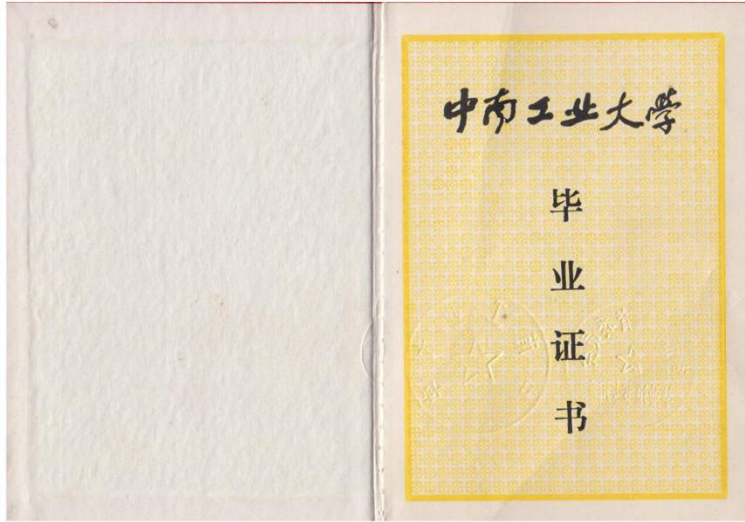 中南工业大學
毕
业
证
书